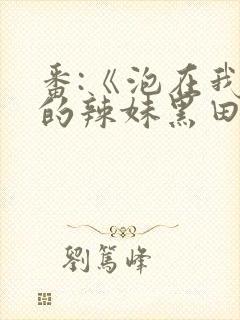 番:《泡在我
的辣妹黑田
劉篤峰